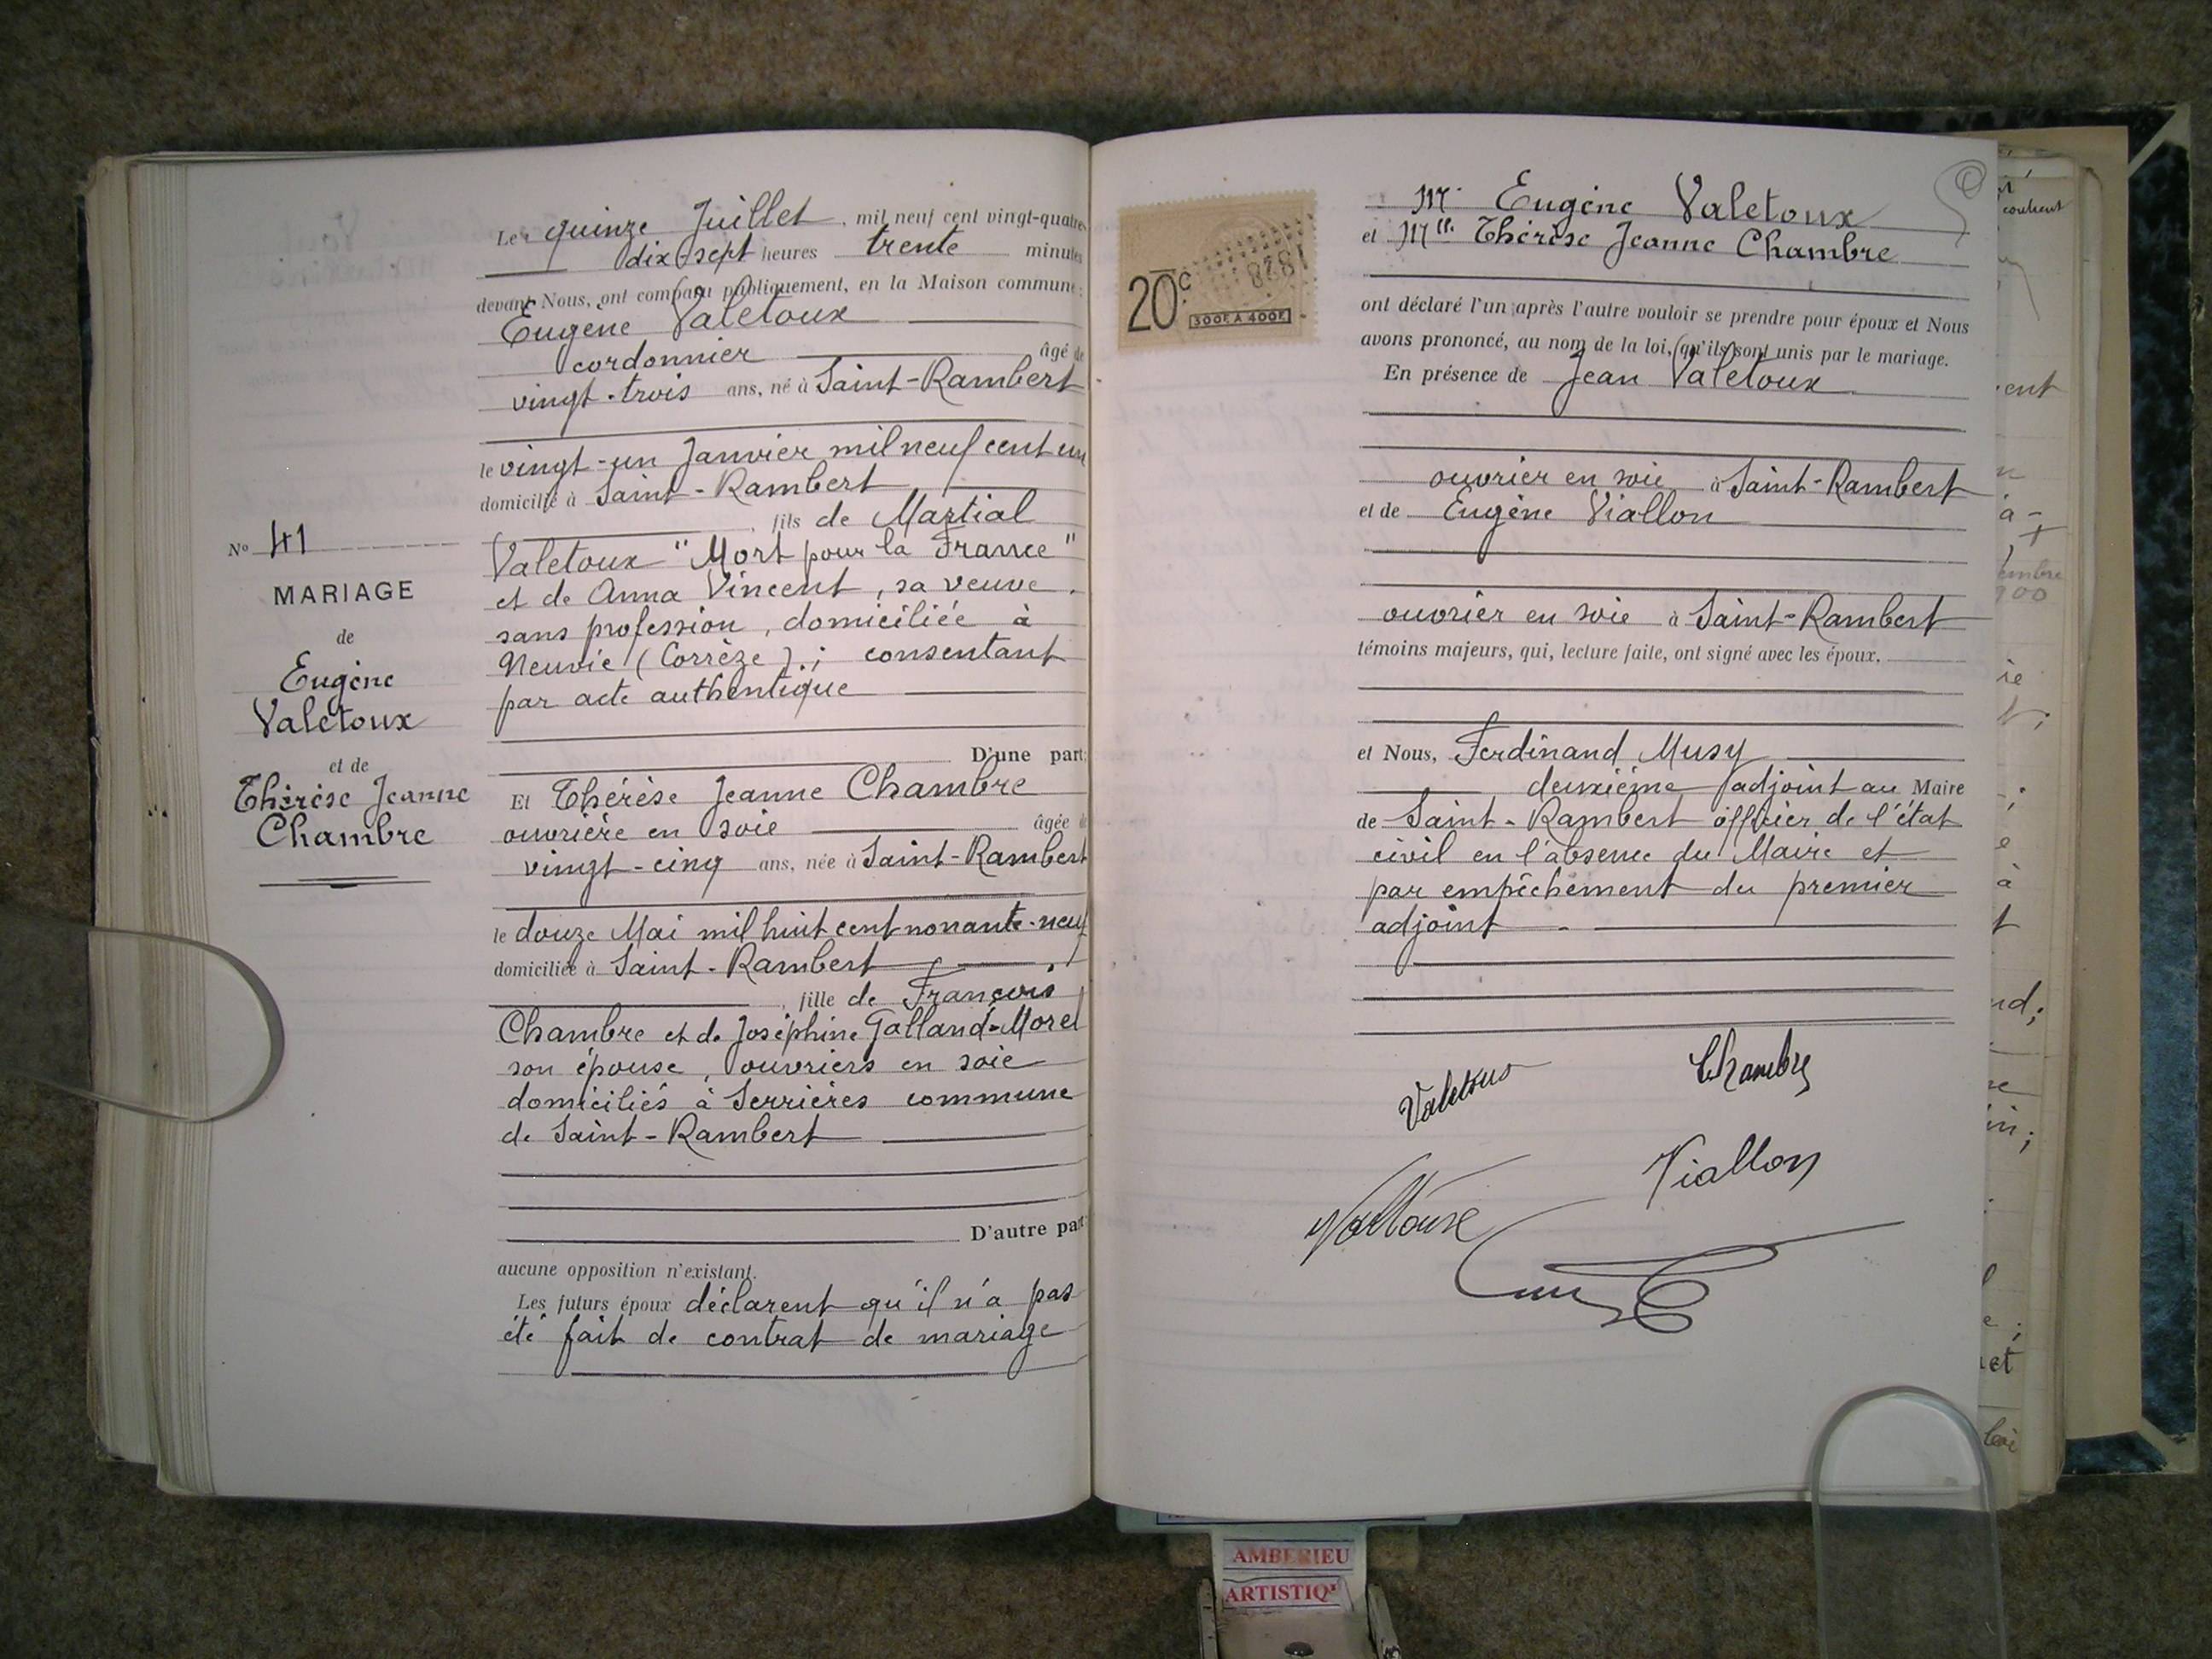 Le quinze Juillet, mil neuf cent vingt-quatre
dix-sept heures trente minutes
devant Nous, ont comparu publiquement, en la Maison commune :
Eugène Valetoux
cordonnier âgé de
vingt-trois ans, né à Saint-Rambert
le vingt-un Janvier mil neuf cent un
domicilié à Saint-Rambert
, fils de Martial
Valetoux "Mort pour la France"
et de Anna Vincent, sa veuve,
sans profession, domiciliée à
Neuvic (Corrèze) ; consentant
par acte authentique
D'une part;
Et Thérèse Jeanne Chambre
ouvrière en soie âgée de
vingt-cinq ans, née à Saint-Rambert
le douze Mai mil huit cent nonante-neuf
domiciliée à Saint-Rambert
, fille de François
Chambre et de Joséphine Galland-Morel
son épouse, ouvriers en soie
domiciliés à Serrières commune
de Saint-Rambert
D'autre part
aucune opposition n'existant.
Les futurs époux déclarent qu'il n'a pas
été fait de contrat de mariage
N° 41
MARIAGE
de
Eugène
Valetoux
et de
Thérèse Jeanne
Chambre
20c
300F A 400F
8781
Mr Eugène Valetoux
et Mlle Thérèse Jeanne Chambre
ont déclaré l'un après l'autre vouloir se prendre pour époux et Nous
avons prononcé, au nom de la loi, qu'ils sont unis par le mariage.
En présence de Jean Valetoux
ouvrier en soie à Saint-Rambert
et de Eugène Viallon
ouvrier en soie à Saint-Rambert
témoins majeurs, qui, lecture faite, ont signé avec les époux,
et Nous, Ferdinand Musy
deuxième adjoint au Maire
de Saint-Rambert officier de l'état
civil en l'absence du Maire et
par empêchement du premier
adjoint
Valetoux
Chambre
Viallon
AMBERIEU
ARTISTIQ